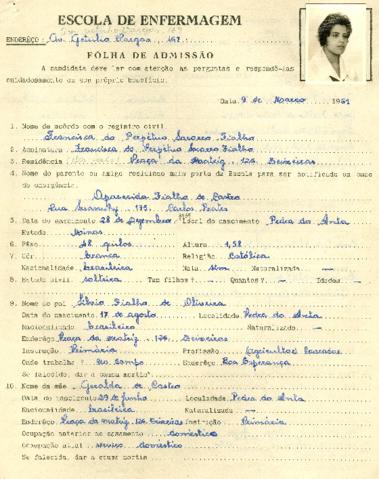 ESCOLA DE ENFERMAGEM
ENDERÊÇO: Av. Getulio Vargas, 167
FÔLHA DE ADMISSÃO
A candidata deve ler com atenção as perguntas e respondê-las
cuidadosamente em seu próprio benefício.
Data 9 de Março 1961
1. Nome de acôrdo com o registro civil
Francisca do Perpétuo Socorro Fialho
2. Assinatura Francisca do Perpétuo Socorro Fialho
3. Residência Praça da Matriz, 126
4. Nome do parente ou amigo residindo mais perto da Escola para ser notificado em caso
de emergência.
Aparecida Fialho de Castro
Rua 175. Carlos Prates
5. Data do nascimento 28 de Dezembro Local do nascimento Pedra do Anta
Estado Minas
6. Pêso 48 quilos Altura 1,58
7. Côr branca Religião Católica
Nacionalidade brasileira Nata Sim Naturalizada —
8. Estado civil solteira Tem filhos? — Quantos? — Idades —
9. Nome do pai Fialho de Oliveira
Data do nascimento 17 de agosto Localidade Pedra do Anta
Nacionalidade brasileiro Naturalizado —
Enderêço Praça da Matriz, 126
Instrução Primária Profissão (agricultor)
Onde trabalha? no campo Enderêço Boa Esperança
Se falecido, dar a causa mortis
10. Nome da mãe Geralda de Castro
Data do nascimento 29 de junho Localidade Pedra do Anta
Nacionalidade brasileira Naturalizada —
Enderêço Praça da Matriz, 126 Instrução Primária
Ocupação anterior ao casamento doméstica
Ocupação atual serviço doméstico
Se falecida, dar a causa mortis